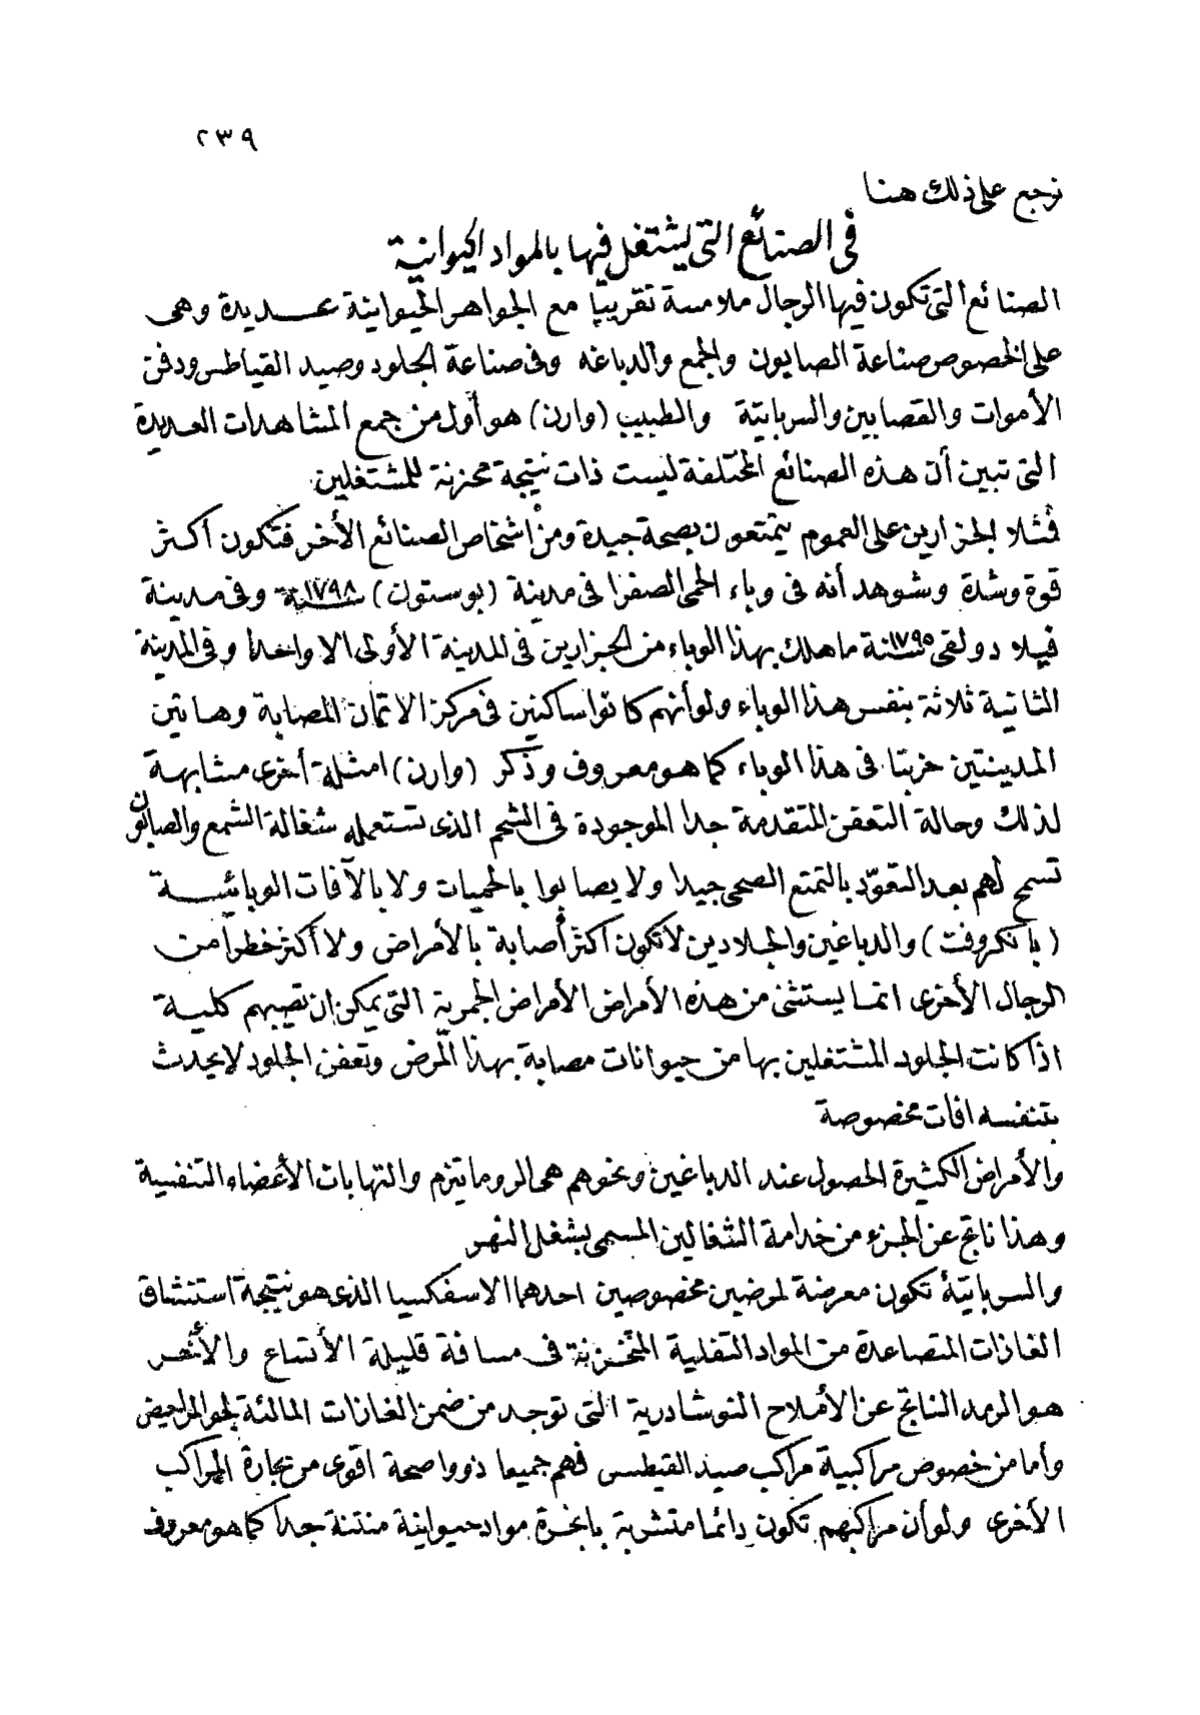 ٢٣٩
نرجع على ذلك هنا
فى الصنائع التى يشتغل فيها بالمواد الحيوانية
الصنائع التى تكون فيها الرجال ملامسة تقريبا مع الجواهر الحيوانية عديدة وهى
على الخصوص صناعة الصابون والجمع والدباغه وفى صناعة الجلود وصيد القياطس ودفن
الأموات والقصابين والسرباتية والطبيب (وارن) هو أول من جمع المشاهدات العديدة
التى تبين أن هذه الصنائع المختلفة ليست ذات نتيجة محزنة للمشتغلين
فمثلا الجزارين على العموم يتمتعون بصحة جيدة ومن أشخاص الصنائع الأخر فتكون أكثر
قوة وشدة وشوهد أنه فى وباء الحمى الصفرا فى مدينة (بوستون) سنة ١٧٩٨ وفى مدينة
فيلا دولفى سنة ١٧٩٥ ما هلك بهذا الوباء من الجزارين فى المدينة الأولى الا واحدا وفى المدينة
الثانية ثلاثة بنفس هذا الوباء ولو أنهم كانوا ساكنين فى مركز الاتمان المصابة وهاتين
المدينتين خربتا فى هذا الوباء كما هو معروف وذكر (وارن) امثلة أخرى مشابهة
لذلك وحالة التعفن المتقدمة جدا الموجودة فى الشحم الذى تستعمله شغالة الشمع والصابون
تسمح لهم بعد التعوّد بالتمتع الصحى جيدا ولا يصابوا بالحميات ولا بالآفات الوبائية
(بانكروفت) والدباغين والجلادين لا تكون أكثر أصابة بالأمراض ولا أكثر خطرا من
الرجال الأخرى انما يستثنى من هذه الأمراض الأمراض الجمرية التى يمكن ان تصيبهم كلية
اذا كانت الجلود المشتغلين بها من حيوانات مصابة بهذا المرض وتعفن الجلود لا يحدث
بتنفسه افات مخصوصة
والأمراض الكثيرة الحصول عند الدباغين ونحوهم هى الروماتيزم والتهابات الأعضاء التنفسية
وهذا ناتج عن الجزء من خدامة الشغالين المسمى بشغل النهر
والسرباتية تكون معرضة لمرضين مخصوصين احدهما الاسفكسيا الذى هو نتيجة استنشاق
الغازات المتصاعدة من المواد التفلية المتخزنة فى مسافة قليلة الأتساع والأخر
هو الرمد الناتج عن الأملاح النوشادرية التى توجد من ضمن الغازات المالئة لجو المراحيض
وأما من خصوص مراكبية مراكب صيد القيطس فهم جميعا ذووا صحة اقوى من بحارة المراكب
الأخرى ولو أن مراكبهم تكون دائما متشربة بابخرة مواد حيوانية منتنة جدا كما هو معروف